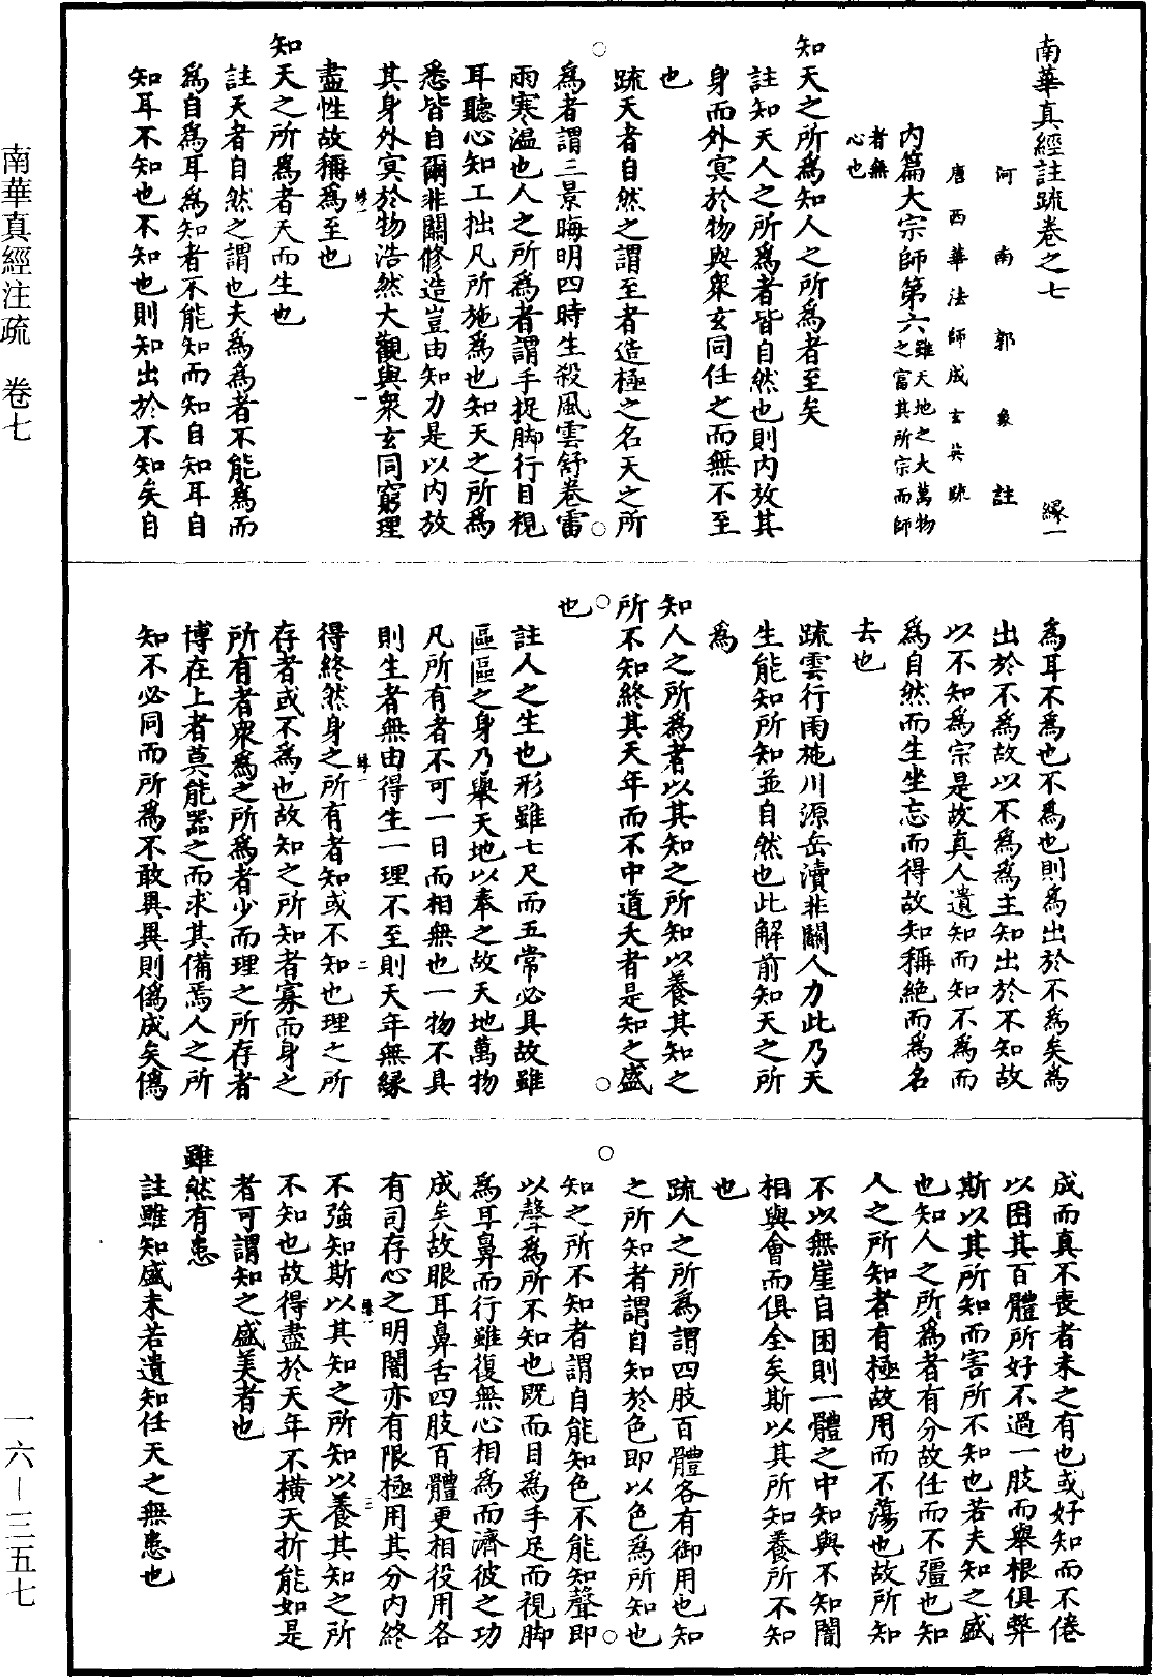 南華真經註疏卷之七　緣一
河南郭象註
唐西華法師成玄英疏
內篇大宗師第六雖天地之大萬物
之富其所宗而師
者無
心也
知天之所為知人之所為者至矣
註知天人之所為者皆自然也則內放其
身而外冥於物與眾玄同任之而無不至
也
疏天者自然之謂至者造極之名天之所
為者謂三景晦明四時生殺風雲舒卷雷
雨寒溫也人之所為者謂手捉脚行目視
耳聽心知工拙凡所施為也知天之所為
悉皆自爾非關修造豈由知力是以內放
其身外冥於物浩然大觀與眾玄同窮理
盡性故稱為至也
知天之所為者天而生也
註天者自然之謂也夫為為者不能為而
為自為耳為知者不能知而知自知耳自
知耳不知也不知也則知出於不知矣自
為耳不為也不為也則為出於不為矣為
出於不為故以不為為主知出於不知故
以不知為宗是故真人遺知而知不為而
為自然而生坐忘而得故知稱絕而為名
去也
疏雲行雨施川源岳瀆非關人力此乃天
生能知所知並自然也此解前知天之所
為
知人之所為者以其知之所知以養其知之
所不知終其天年而不中道夭者是知之盛
也
註人之生也形雖七尺而五常必具故雖
區區之身乃舉天地以奉之故天地萬物
凡所有者不可一日而相無也一物不具
則生者無由得生一理不至則天年無緣
得終然身之所有者知或不知也理之所
存者或不為也故知之所知者寡而身之
所有者眾為之所為者少而理之所存者
博在上者莫能器之而求其備焉人之所
知不必同而所為不敢異異則偽成矣偽
成而真不喪者未之有也或好知而不倦
以困其百體所好不過一肢而舉根俱弊
斯以其所知而害所不知也若夫知之盛
也知人之所為者有分故任而不彊也知
人之所知者有極故用而不蕩也故所知
不以無崖自困則一體之中知與不知闇
相與會而俱全矣斯以其所知養所不知
也
疏人之所為謂四肢百體各有御用也知
之所知者謂目知於色即以色為所知也
知之所不知者謂目能知色不能知聲即
以聲為所不知也既而目為手足而視脚
為耳鼻而行雖復無心相為而濟彼之功
成矣故眼耳鼻舌四肢百體更相役用各
有司存心之明闇亦有限極用其分內終
不強知斯以其知之所知以養其知之所
不知也故得盡於天年不橫夭折能如是
者可謂知之盛美者也
雖然有患
註雖知盛未若遺知任天之無患也
南華真經注疏　卷七
一六—三五七